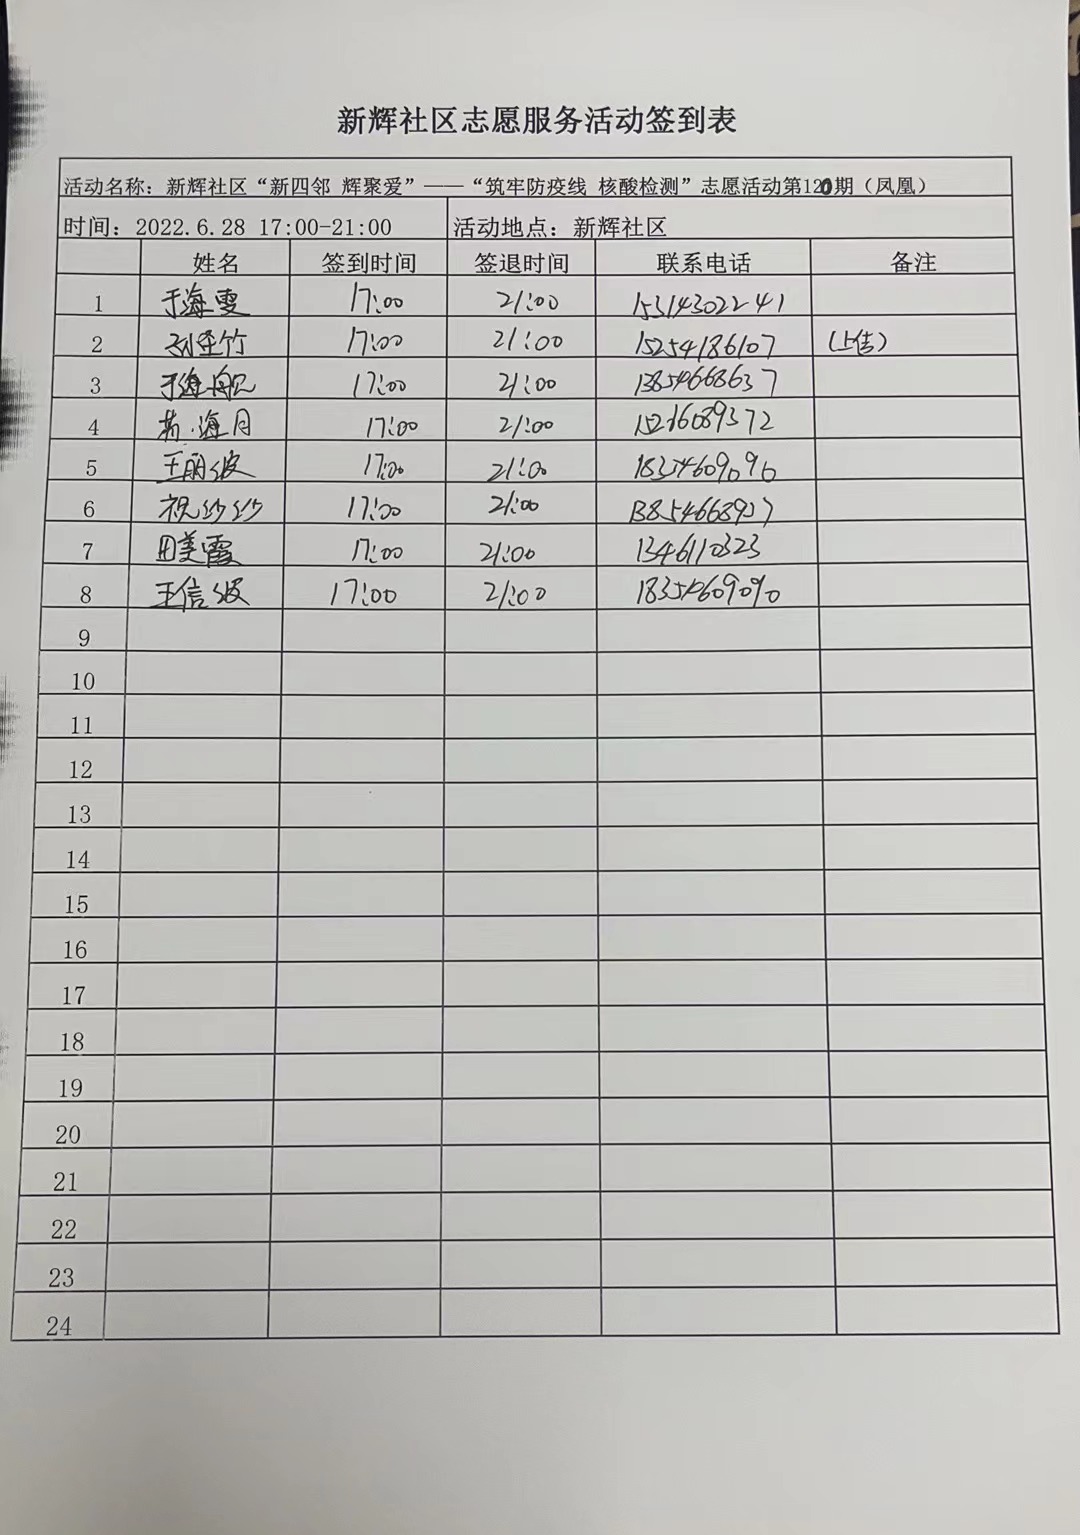 新辉社区志愿服务活动签到表
活动名称：新辉社区“新四邻 辉聚爱”——“筑牢防疫线 核酸检测”志愿活动第120期（凤凰）
时间：2022.6.28 17:00-21:00 活动地点：新辉社区
姓名 签到时间 签退时间 联系电话 备注
1 于海雯 17:00 21:00 15314302241
2 17:00 21:00 15254186107
3 于海船 17:00 21:00 13854668637
4 海月 17:00 21:00
5 王丽波 17:00 21:00 18354609090
6 祝纱纱 17:00 21:00 13854668907
7 田美霞 17:00 21:00 1346110323
8 王信波 17:00 21:00 18354609090
9
10
11
12
13
14
15
16
17
18
19
20
21
22
23
24